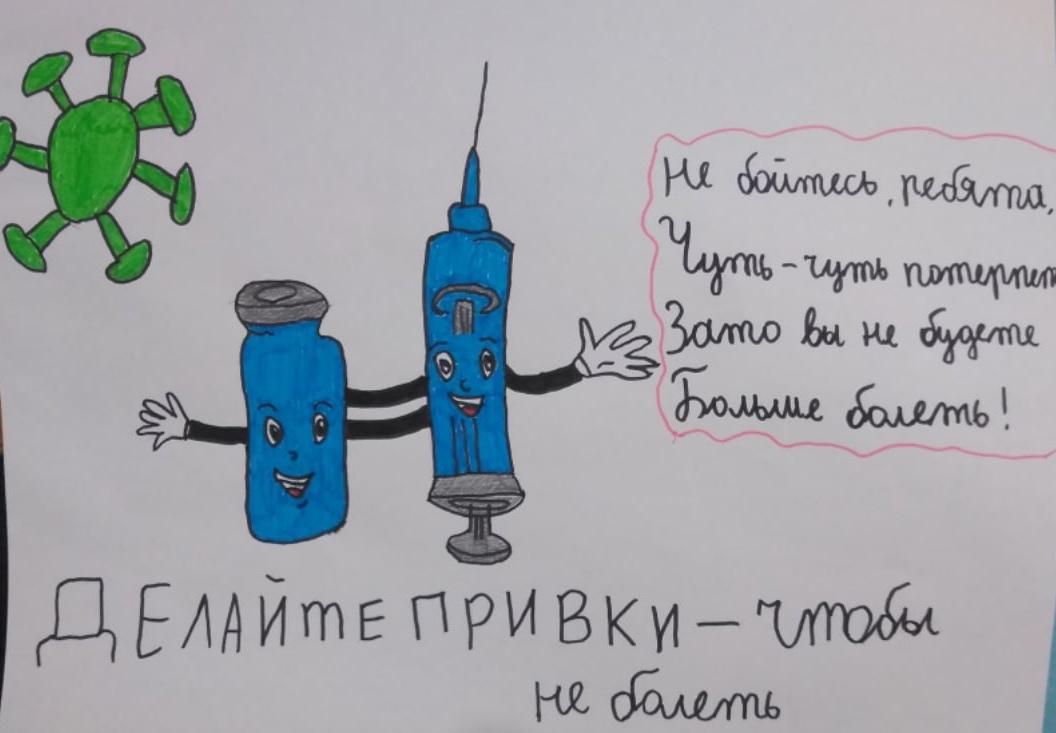 Не бойтесь, ребята,
Чуть-чуть потерпет
Зато вы не будете
Больше болеть!
ДЕЛАЙТЕ ПРИВКИ - чтобы
не болеть